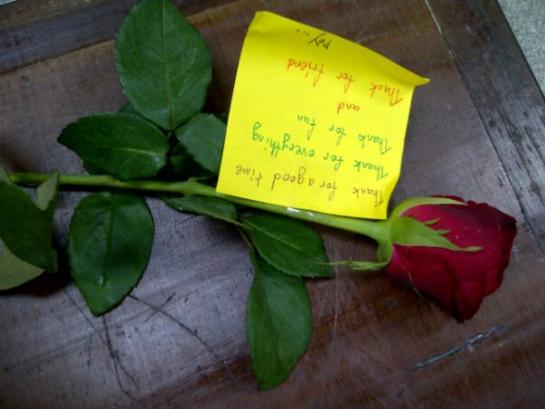 Thank for a good time
Thank for everything
Thank for fun
and
Thank for friend